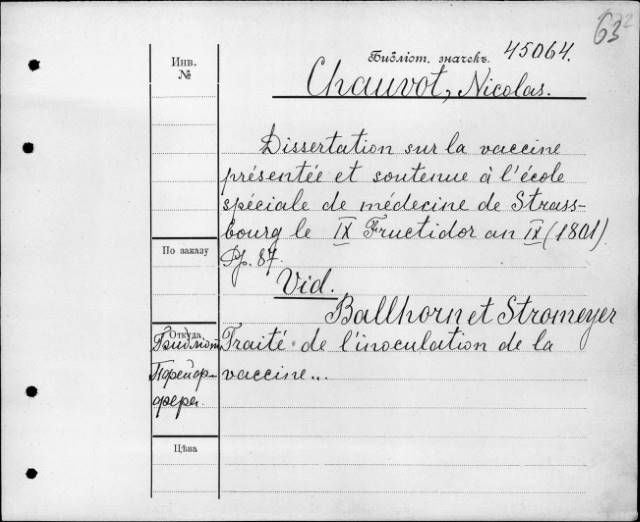 63²
Инв.
№
Библіот. значекъ. 45064.
Chauvot, Nicolas.
Dissertation sur la vaccine
présentée et soutenue à l'école
spéciale de médecine de Strass-
bourg le IX Fructidor an IX (1801).
Pp. 87.
По заказу
Vid.
Ballhorn et Stromeyer
Откуда
Traité de l'inoculation de la
vaccine...
Цѣна